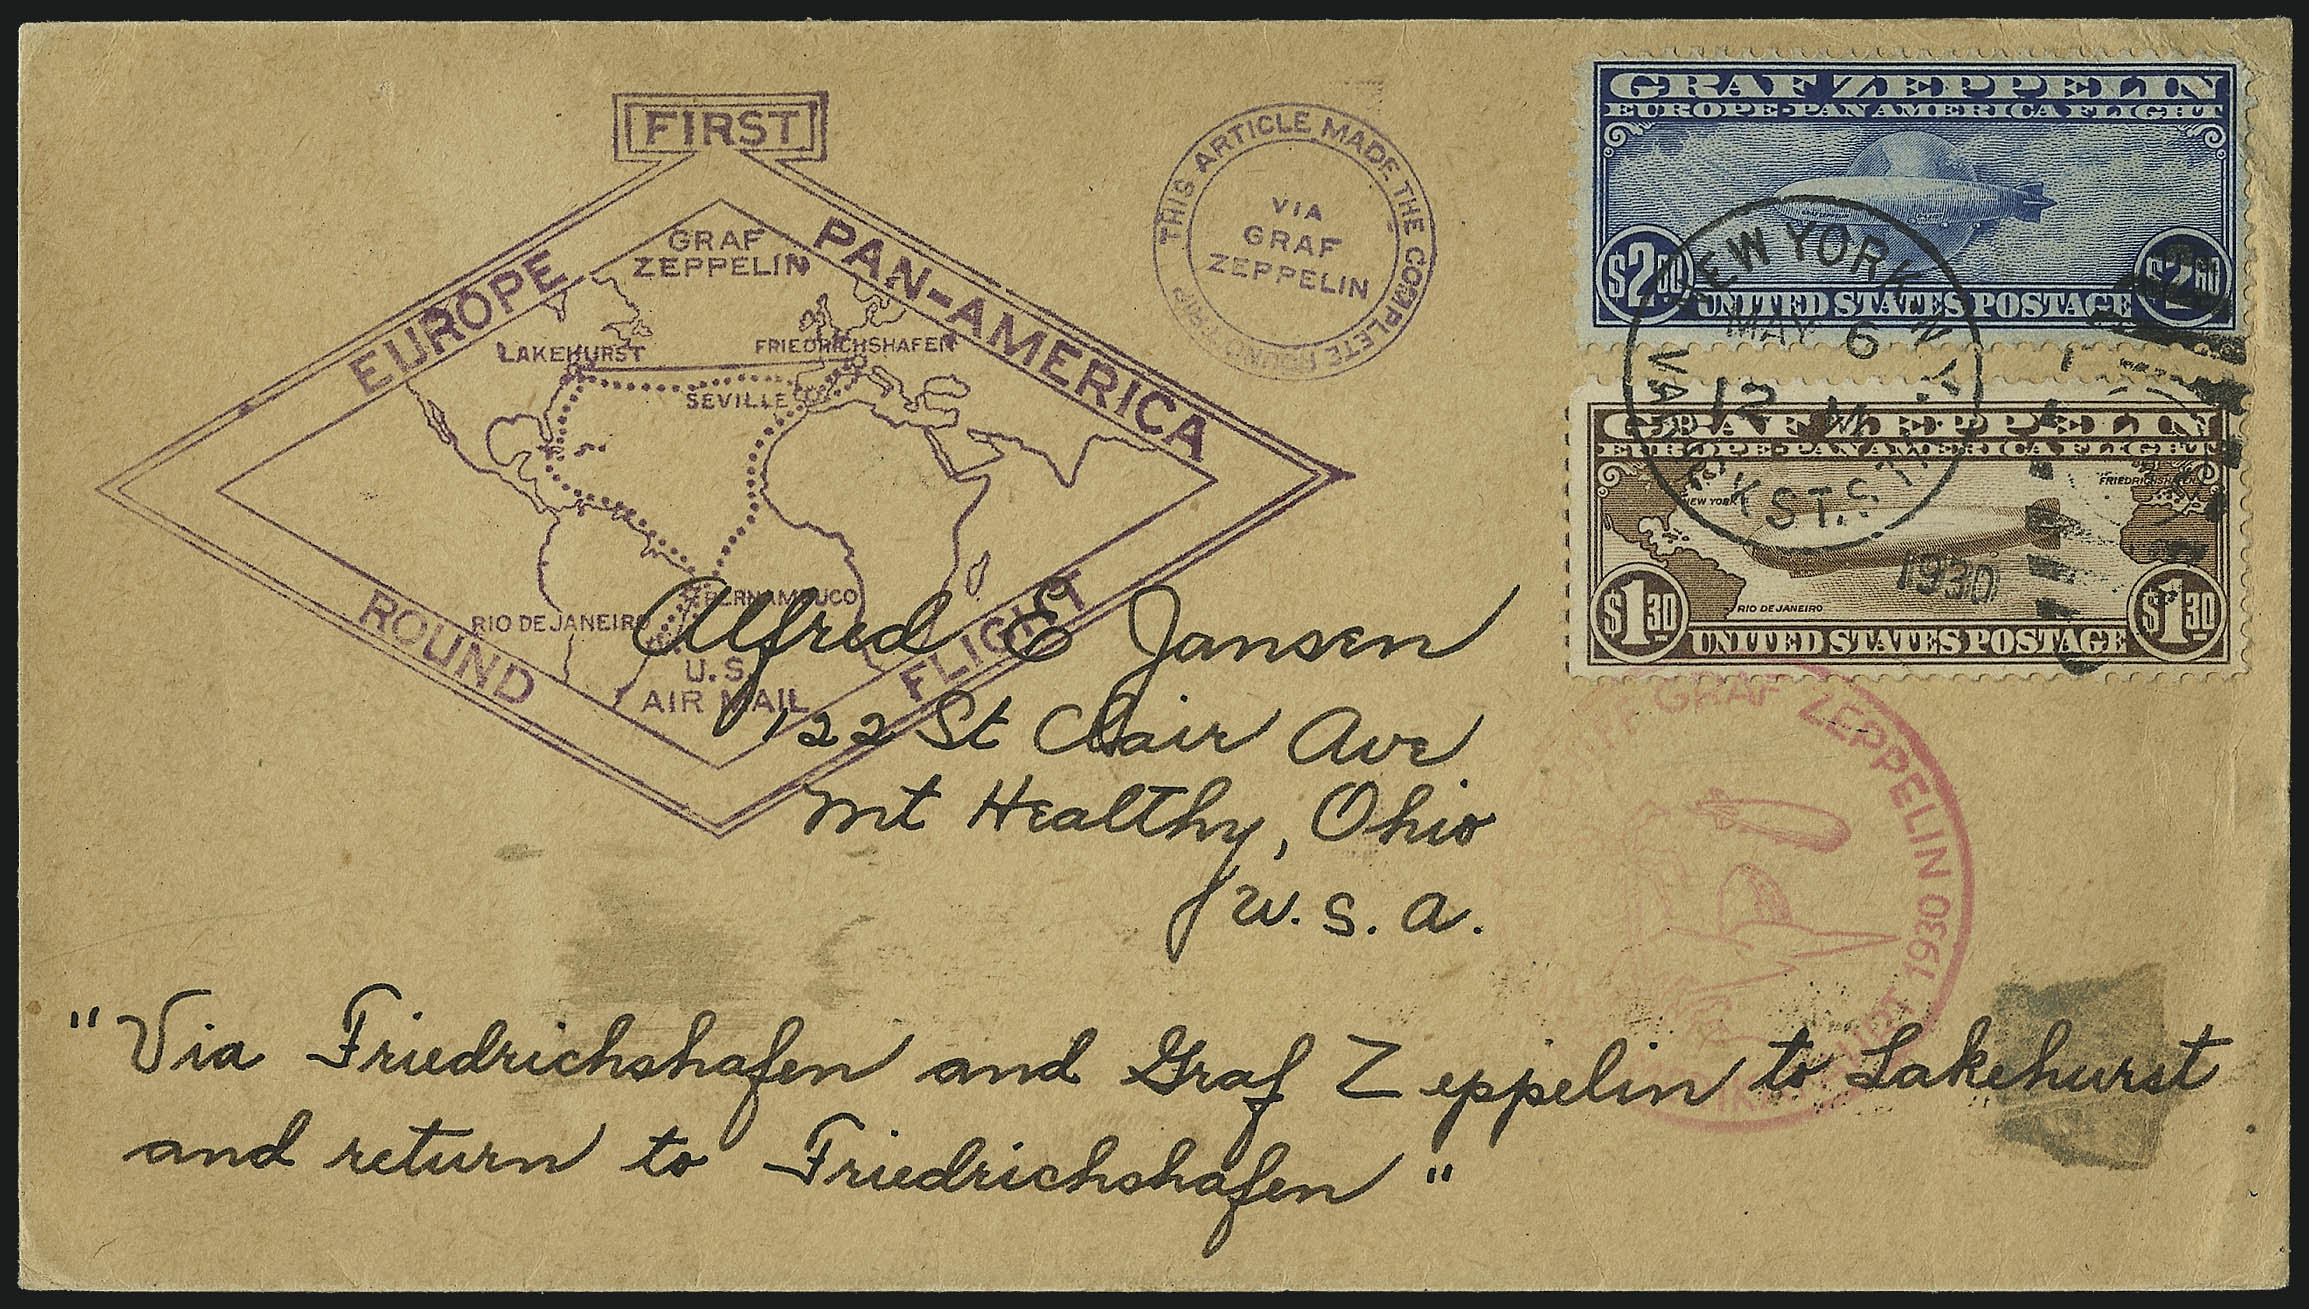 FIRST
EUROPE PAN-AMERICA
GRAF
ZEPPELIN
LAKEHURST
FRIEDRICHSHAFEN
SEVILLE
PERNAMBUCO
RIO DE JANEIRO
U.S.
AIR MAIL
ROUND FLIGHT
THIS ARTICLE MADE THE COMPLETE ROUND TRIP
VIA
GRAF
ZEPPELIN
GRAF ZEPPELIN
EUROPE-PAN AMERICA FLIGHT
$2.60 UNITED STATES POSTAGE $2.60
NEW YORK, N.Y.
MAY 6
12 M
1930
VARICK ST. STA.
GRAF ZEPPELIN
EUROPE-PAN AMERICA FLIGHT
NEW YORK
FRIEDRICHSHAFEN
RIO DE JANEIRO
$1.30 UNITED STATES POSTAGE $1.30
Alfred E Jansen
122 St Clair Ave
Mt Healthy, Ohio
U.S.A.
GRAF ZEPPELIN 1930
1930
"Via Friedrichshafen and Graf Zeppelin to Lakehurst
and return to Friedrichshafen"